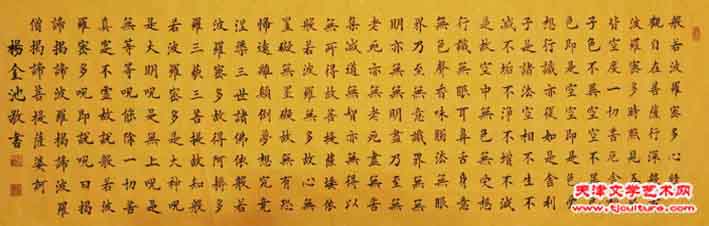 般若波羅密多心經
觀自在菩薩行深般若
波羅密多時照見五蘊
皆空度一切苦厄舍利
子色不異空空不異色
色即是空空即是色受
想行識亦復如是舍利
子是諸法空相不生不
滅不垢不淨不增不減
是故空中無色無受想
行識無眼耳鼻舌身意
無色聲香味觸法無眼
界乃至無意識界無
無明亦無無明盡乃至無
老死亦無老死盡無苦
集滅道無智亦無得以
無所得故菩提薩埵依
般若波羅密多故心無
罣礙無罣礙故無有恐
怖遠離顛倒夢想究竟
涅槃三世諸佛依般若
波羅密多故得阿耨多
羅三藐三菩提故知般
若波羅密多是大神呪
是大明呪是無上呪是
無等等呪能除一切苦
真實不虛故說般若波
羅密多呪即說呪曰揭
諦揭諦波羅揭諦波羅
僧揭諦菩提薩婆訶
楊金池敬書
天津文学艺术网
www.tjculture.com